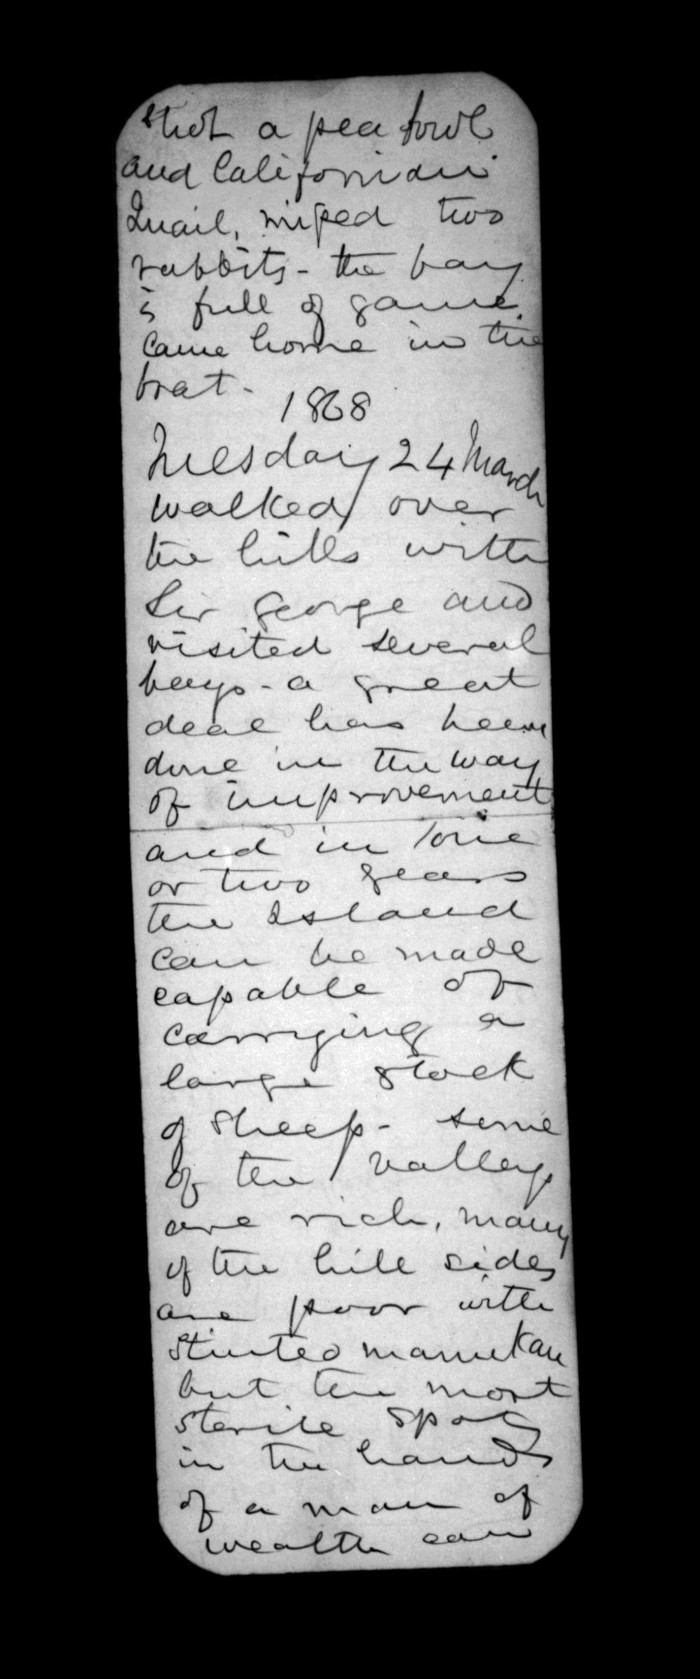 Shot a pea fowl
and Californian
Quail, miped two
rabbits - the bay
is full of game.
Came home in the
boat -
1868
Tuesday 24 March
walked over
the hills with
Sir George and
visited several
bays - a great
deal has been
done in the way
of improvement
and in one
or two years
the Island
can be made
capable of
carrying a
large stock
of sheep - some
of the valleys
are rich, many
of the hill sides
are poor with
stinted manukau
but the most
sterile spots
in the hands
of a man of
wealth can